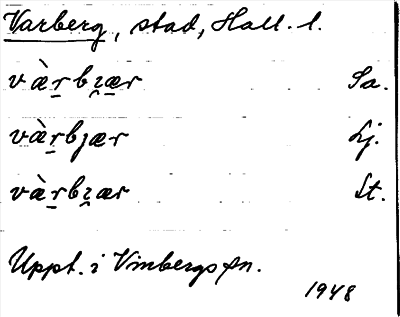 Varberg, stad, Hall. l.
vàr̲bʒ̯æ̲r Sa.
vàr̲bȷær Lj.
vàr̲bʒ̯ær St.
Uppt. i Vinbergs sn.
1948